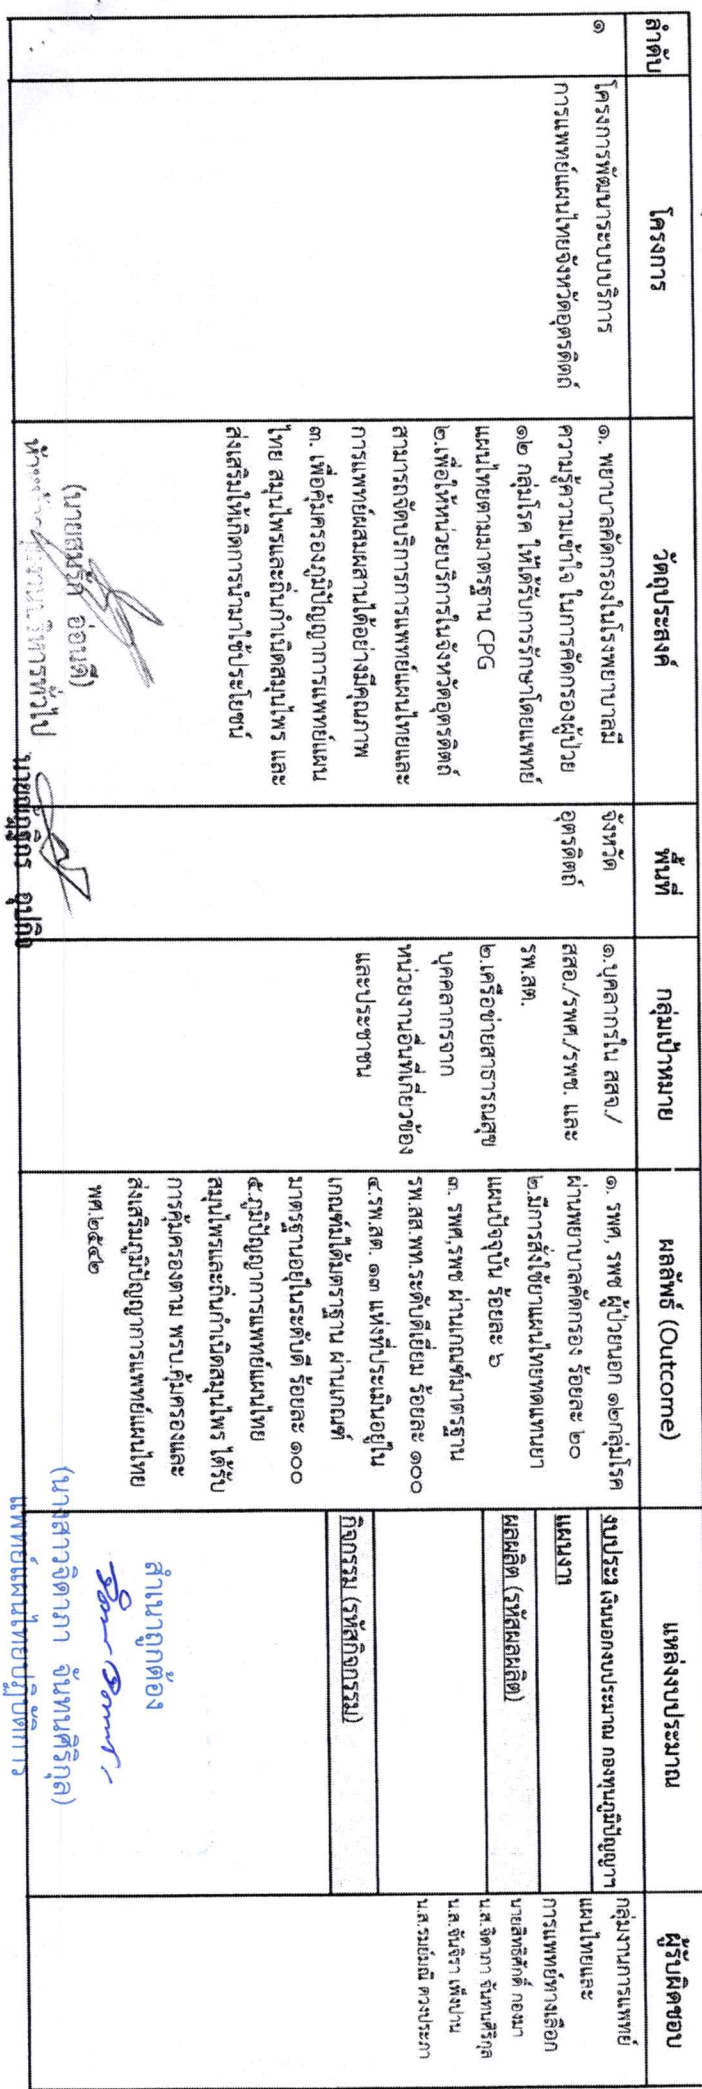 ลำดับ
โครงการ
วัตถุประสงค์
พื้นที่
กลุ่มเป้าหมาย
ผลลัพธ์ (Outcome)
แหล่งงบประมาณ
ผู้รับผิดชอบ
๑
โครงการพัฒนาระบบบริการ
การแพทย์แผนไทยจังหวัดอุตรดิตถ์
๑. พยาบาลคัดกรองในโรงพยาบาลมี
ความรู้ความเข้าใจ ในการคัดกรองผู้ป่วย
๑๒ กลุ่มโรค ให้ได้รับการรักษาโดยแพทย์
แผนไทยตามมาตรฐาน CPG
๒.เพื่อให้หน่วยบริการในจังหวัดอุตรดิตถ์
สามารถจัดบริการการแพทย์แผนไทยและ
การแพทย์ผสมผสานได้อย่างมีคุณภาพ
๓. เพื่อคุ้มครองภูมิปัญญาการแพทย์แผน
ไทย สมุนไพรและถิ่นกำเนิดสมุนไพร และ
ส่งเสริมให้เกิดการนำมาใช้ประโยชน์
จังหวัด
อุตรดิตถ์
๑.บุคลากรใน สสจ./
สสอ./รพศ./รพช. และ
รพ.สต.
๒.เครือข่ายสาธารณสุข
บุคคลากรจาก
หน่วยงานอื่นที่เกี่ยวข้อง
และประชาชน
๑. รพศ, รพช ผู้ป่วยนอก ๑๒กลุ่มโรค
ผ่านพยาบาลคัดกรอง ร้อยละ ๒๐
๒.มีการสั่งใช้ยาแผนไทยทดแทนยา
แผนปัจจุบัน ร้อยละ ๖
๓. รพศ,รพช ผ่านเกณฑ์มาตรฐาน
รพ.สส.พท.ระดับดีเยี่ยม ร้อยละ ๑๐๐
๔.รพ.สต. ๑๓ แห่งที่ประเมินอยู่ใน
เกณฑ์มีได้มตราฐาน ผ่านเกณฑ์
มาตรฐานอยู่ในระดับดี ร้อยละ ๑๐๐
๕.ภูมิปัญญาการแพทย์แผนไทย
สมุนไพรและถิ่นกำเนิดสมุนไพร ได้รับ
การคุ้มครองตาม พรบ.คุ้มครองและ
ส่งเสริมภูมิปัญญาการแพทย์แผนไทย
พศ.๒๕๔๒
งบประมาณ เงินนอกงบประมาณ กองทุนภูมิปัญญาฯ
แผนงาน
ผลผลิต (รหัสผลผลิต)
กิจกรรม (รหัสกิจกรรม)
กลุ่มงานการแพทย์
แผนไทยและ
การแพทย์ทางเลือก
นายสิทธิศักดิ์ กองมา
น.ส.จิดาภา จันทนศิริกุล
น.ส.จันจิรา เพ็งปาน
น.ส.รมย์มณี ดวงประภา
(นายสมรัก อ่อนดี)
นายณัฐกร อุปกิจ
สำเนาถูกต้อง
(นางสาวจิดาภา จันทนศิริกุล)
แพทย์แผนไทยปฏิบัติการ